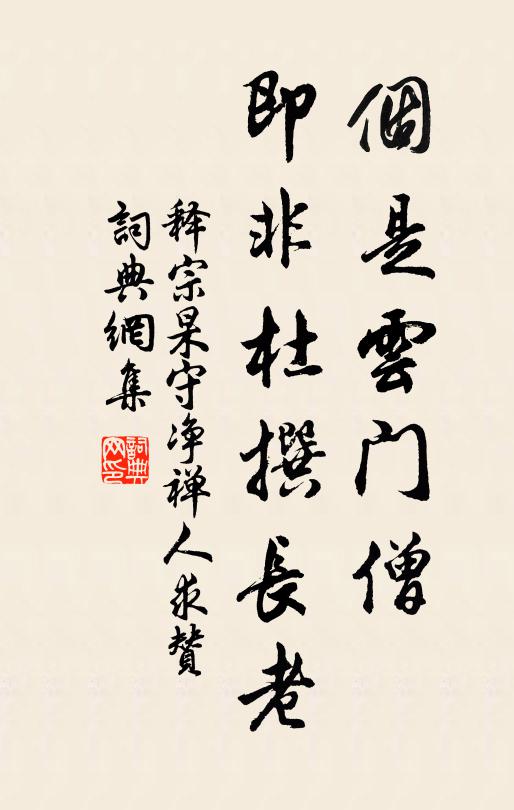 個是雲門僧
即非杜撰長老
释宗杲守净禅人求赞
詞典網集
詞典网印